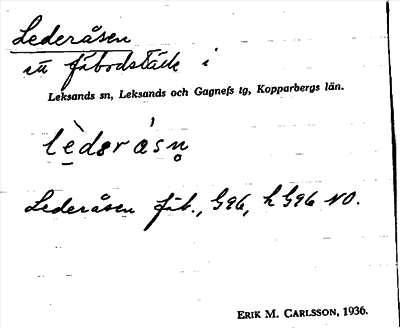 Lederåsen
ett fäbodställe i
Leksands sn, Leksands och Gagnefs tg, Kopparbergs län.
lèdərásn̥
Lederåsen fäb., G96, h G96 NO.
ERIK M. CARLSSON, 1936.